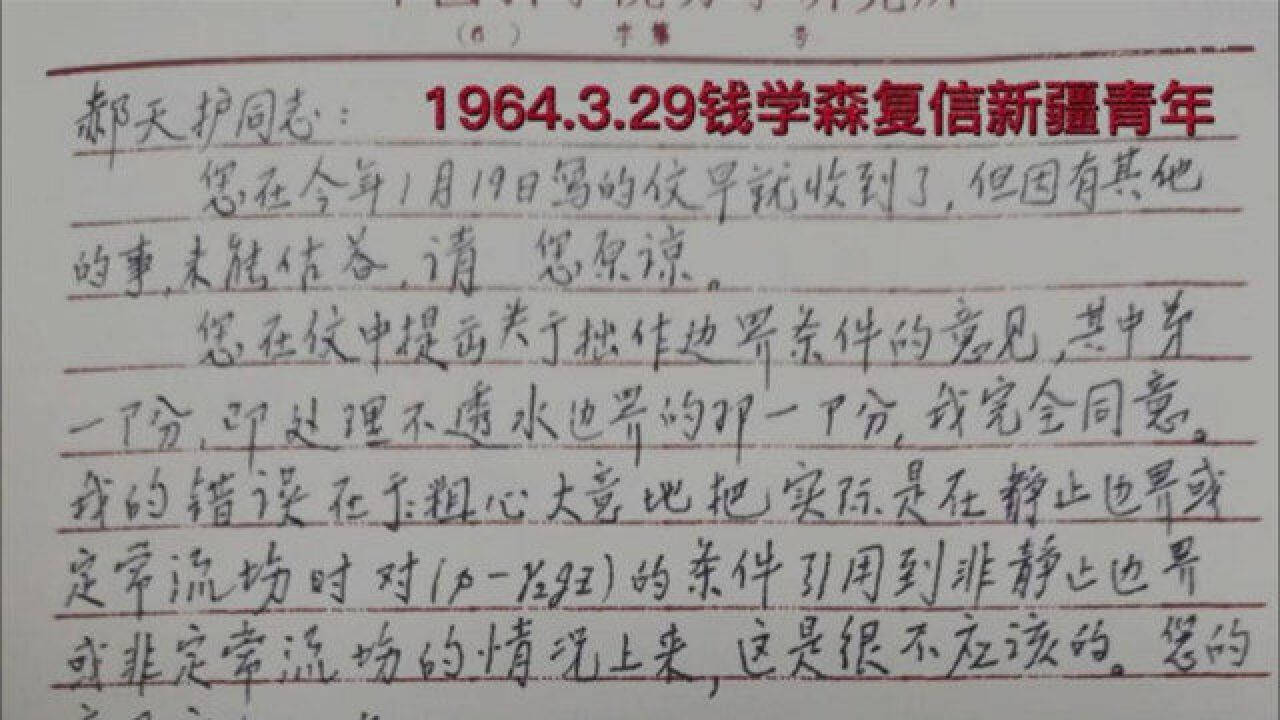 (6) 字第 号
1964.3.29钱学森复信新疆青年
郝天护同志:
您在今年1月19日写的伩早就收到了,但因有其他
的事,未能答,请 您原谅。
您在伩中提出关于拙作边界条件的意见,其中第
一卩分,即处理不透水边界的那一卩分,我完全同意。
我的错误在于:粗心大意地把实际是在静止边界或
定常流场时对(p-γ₂gz)的条件引用到非静止边界
或非定常流场的情况上来,这是很不应该的。您的